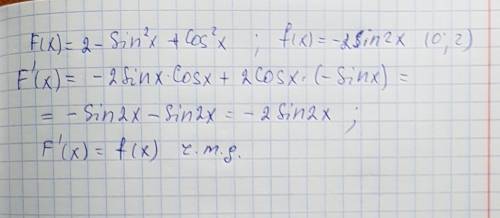 F(x) = 2 - Sin²x + Cos²x ; f(x) = -2Sin2x (0; 2)
F'(x) = -2Sinx·Cosx + 2Cosx·(-Sinx) =
= -Sin2x - Sin2x = -2Sin2x ;
F'(x) = f(x) ч.т.д.